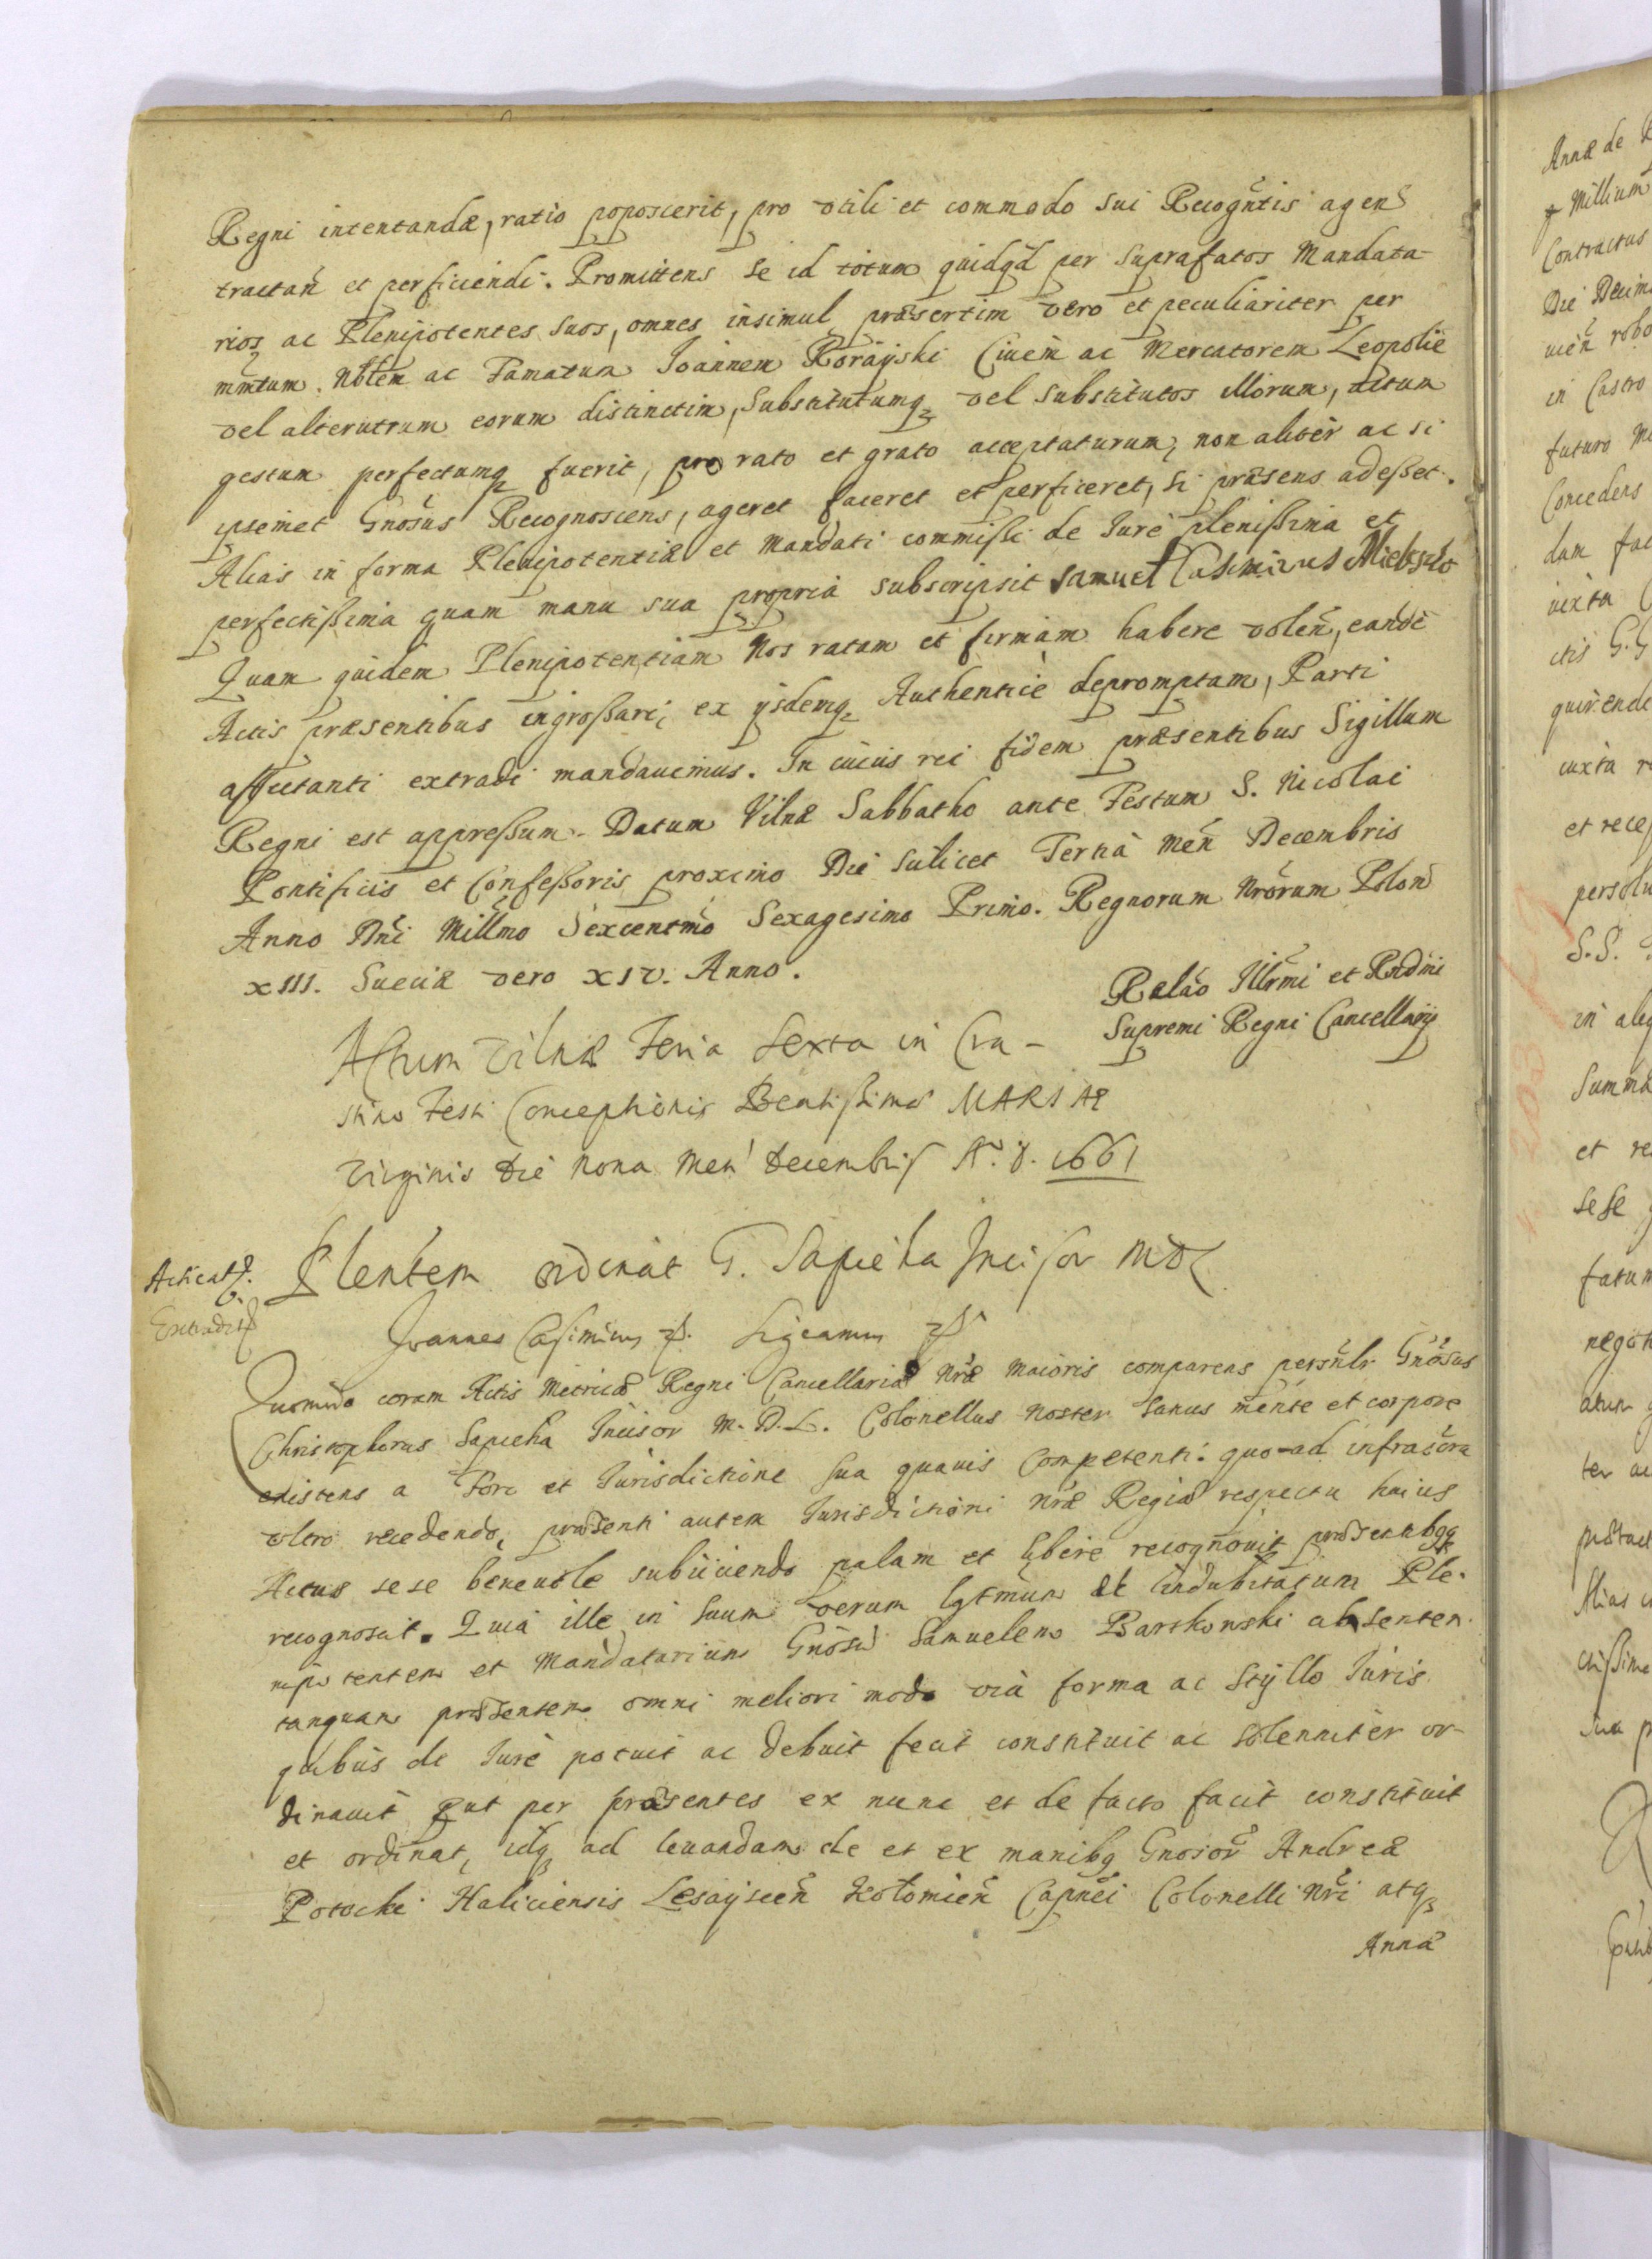 Regni intentandæ, ratio poposcerit, pro vtili et commodo sui Recogntis agen
tractan̄ et perficiendi. Promittens se id totum quidqd per suprafatos Mandata-
rios ac Plenipotentes suos, omnes insimul præsertim vero et peculiariter per
mmtum. Nblem ac Famatum Joannem Korayski Ciuem ac Mercatorem Leopolie
vel alterutrum eorum distinctim, Substitutumq vel substitutos illorum, actum
gestum perfectumq fuerit, pro rato et grato acceptaturum, non aliter ac si
ipsemet Gnosus Recognoscens, ageret faceret et perficeret, si præsens adesset.
Alias in forma Plenipotentiæ et Mandati commissi de Jure plenissima et
perfectissima quam manu sua propria subscripsit Samuel Casimirus
Quam quidem Plenipotentiam Nos ratam et firmam habere volen̄, eandē
Actis præsentibus ingrossari, ex ijsdemq Authenticè depromptam, Parti
affectanti extradi mandauimus. In cuius rei fidem præsentibus Sigillum
Regni est appressum. Datum Vilnæ Sabbatho ante Festum S. Nicolai
Pontificis et Confessoris proximo Die scilicet Tertia Men̄ Decembris
Anno Dni Millmo Sexcentmo Sexagesimo Primo. Regnorum Nrorum Polon
XIII. Sueciæ vero XIV. Anno.
Relao Illrmi et Rndmi
Supremi Regni Cancellarij
Actum Vilnæ Feria Sexta in Cra-
stino Festi Conceptionis Beatissimæ MARIÆ
Virginis Die Nona Men Decembris A. D. 1661
Acticat.
Plentem ordinat G. Sapieha Incisor MDL
Extradit
Joannes Casimirus Significamus
Quomodo coram Actis Metricæ Regni Cancellariæ Nræ Maioris comparens personlr Gnosus
Christophorus Sapieha Incisor M. D. L. Colonellus Noster sanus mente et corpore
existens a Foro et Jurisdictione sua quauis Competenti quo-ad infrascra
vltro recedendo, præsenti autem Jurisdictioni Nræ Regiæ respectu huius
Actus sese beneuole subijciendo palam et libere recognouit præsentibqq
recognoscit. Quia ille in suum verum lgtmum et indubitatum Ple-
nipotentem et Mandatarium Gnosu Samuelem Bartkowski absentem
tanquam præsentem omni meliori modo via forma ac Styllo Juris
quibus de Jure potuit ac debuit fecit constituit ac solenniter or-
dinauit put per præsentes ex nunc et de facto facit constituit
et ordinat, idq ad leuandam de et ex manibq Gnosor Andreæ
Potocki Haliciensis Lesayscen̄ Kolomien̄ Capnei Colonelli Nri atq
Annæ